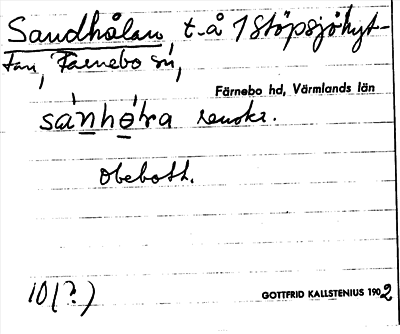 Sandhålan, t. å 1 Stöpsjöhyt-
tan, Färnebo sn,
Färnebo hd, Värmlands län
sánhə̀ra renskr.
Obebott.
10(?)
GOTTFRID KALLSTENIUS 1902